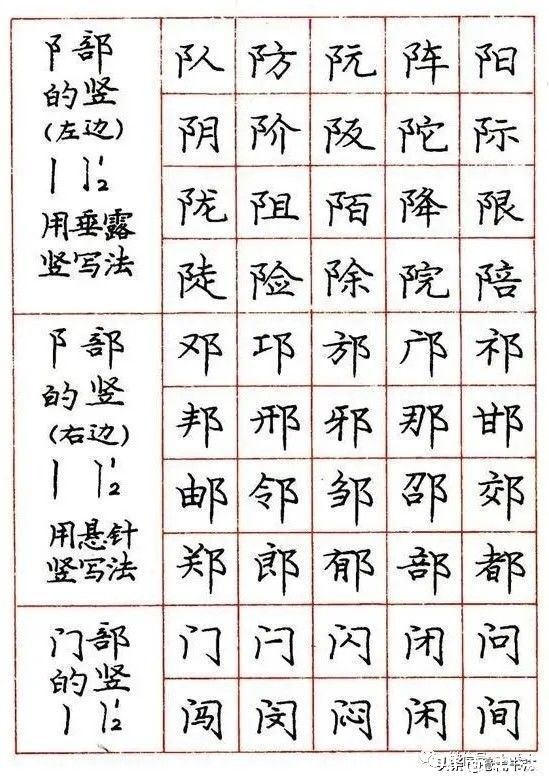 阝部
的竖
(左边)
用垂露
竖写法
队 防 阮 阵 阳
阴 阶 阪 陀 际
陇 阻 陌 降 限
陡 险 除 院 陪
阝部
的竖
(右边)
用悬针
竖写法
邓 邛 邡 邝 祁
邦 邢 邪 那 邯
邮 邻 邹 邵 郊
郑 郎 郁 部 都
门部
的竖
门 闩 闪 闭 问
闯 闵 闷 闲 间